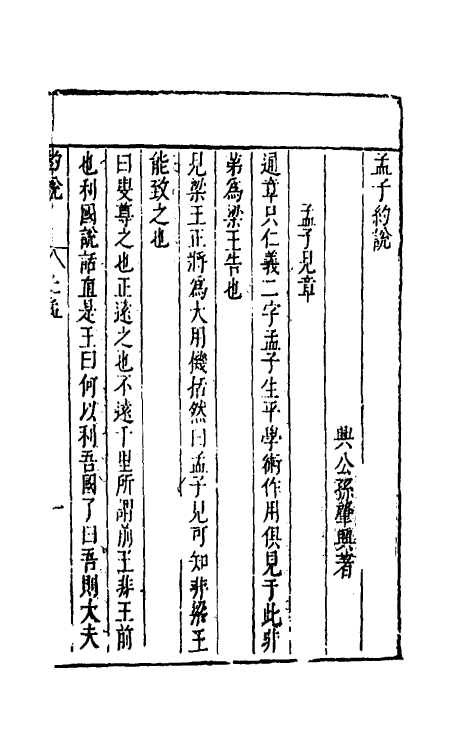 孟子約說
興公孫肇興著
孟子見章
通章只仁義二字孟子生平學術作用俱見于此非
第為梁王告也
見梁王正將為大用機括然曰孟子見可知非梁王
能致之也
曰叟尊之也正遠之也不遠千里所謂前王非王前
也利國說話直是王曰何以利吾國了曰吾則大夫
約說 上孟 一